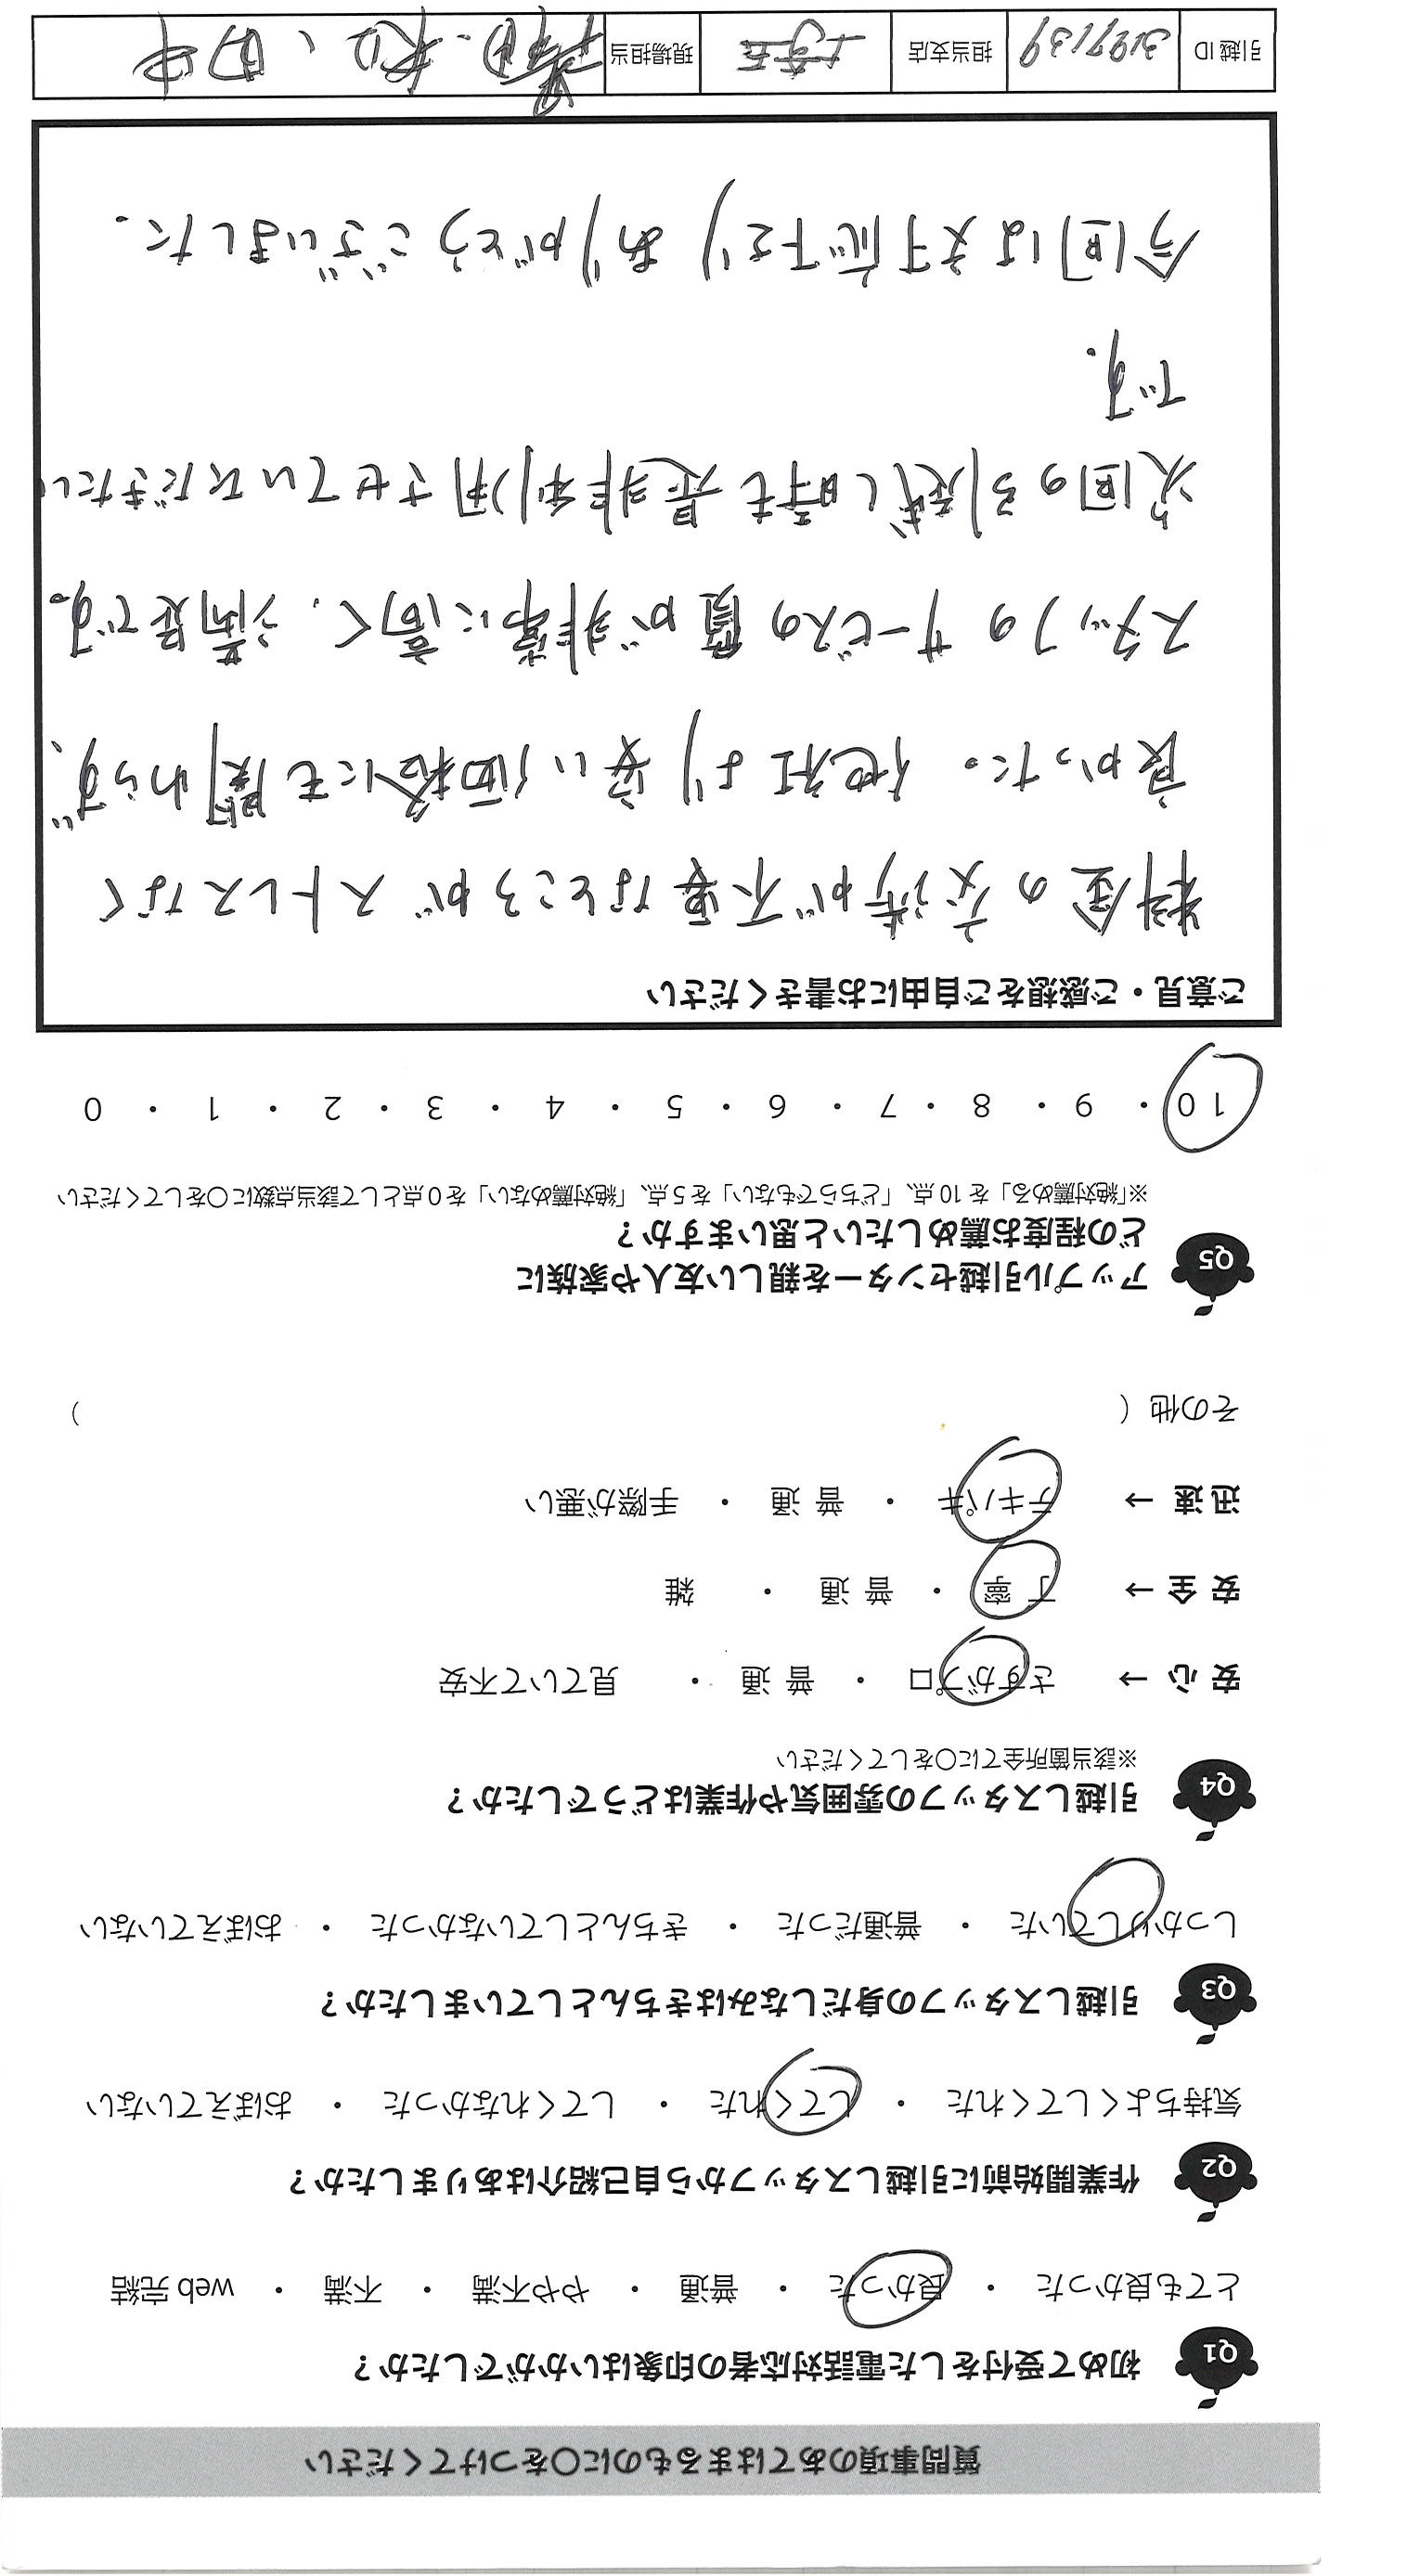 質問事項のあてはまるものに○をつけてください
Q1 初めて受付をした電話対応者の印象はいかがでしたか？
とても良かった ・ 良かった ・ 普通 ・ やや不満 ・ 不満 ・ web 完結
Q2 作業開始前に引越しスタッフから自己紹介はありましたか？
気持ちよくしてくれた ・ してくれた ・ してくれなかった ・ おぼえていない
Q3 引越しスタッフの身だしなみはきちんとしていましたか？
しっかりしていた ・ 普通だった ・ きちんとしていなかった ・ おぼえていない
Q4 引越しスタッフの雰囲気や作業はどうでしたか？
※該当箇所全てに○をしてください
安心 → さすがプロ ・ 普通 ・ 見ていて不安
安全 → 丁寧 ・ 普通 ・ 雑
迅速 → テキパキ ・ 普通 ・ 手際が悪い
その他 （ ）
Q5 アップル引越センターを親しい友人や家族に
どの程度お薦めしたいと思いますか？
※「絶対薦める」を 10 点、「どちらでもない」を 5 点、「絶対薦めない」を 0 点として該当点数に○をしてください
10 ・ 9 ・ 8 ・ 7 ・ 6 ・ 5 ・ 4 ・ 3 ・ 2 ・ 1 ・ 0
ご意見・ご感想をご自由にお書きください
料金の交渉が不要なところがストレスなく
良かった。他社より安い価格にも関わらず、
スタッフのサービスの質が非常に高く、満足です。
次回の引越し時も是非利用させていただきたい
です.
今回は対応下さりありがとうございました.
引越 ID 3197139 担当支店 現場担当 田中